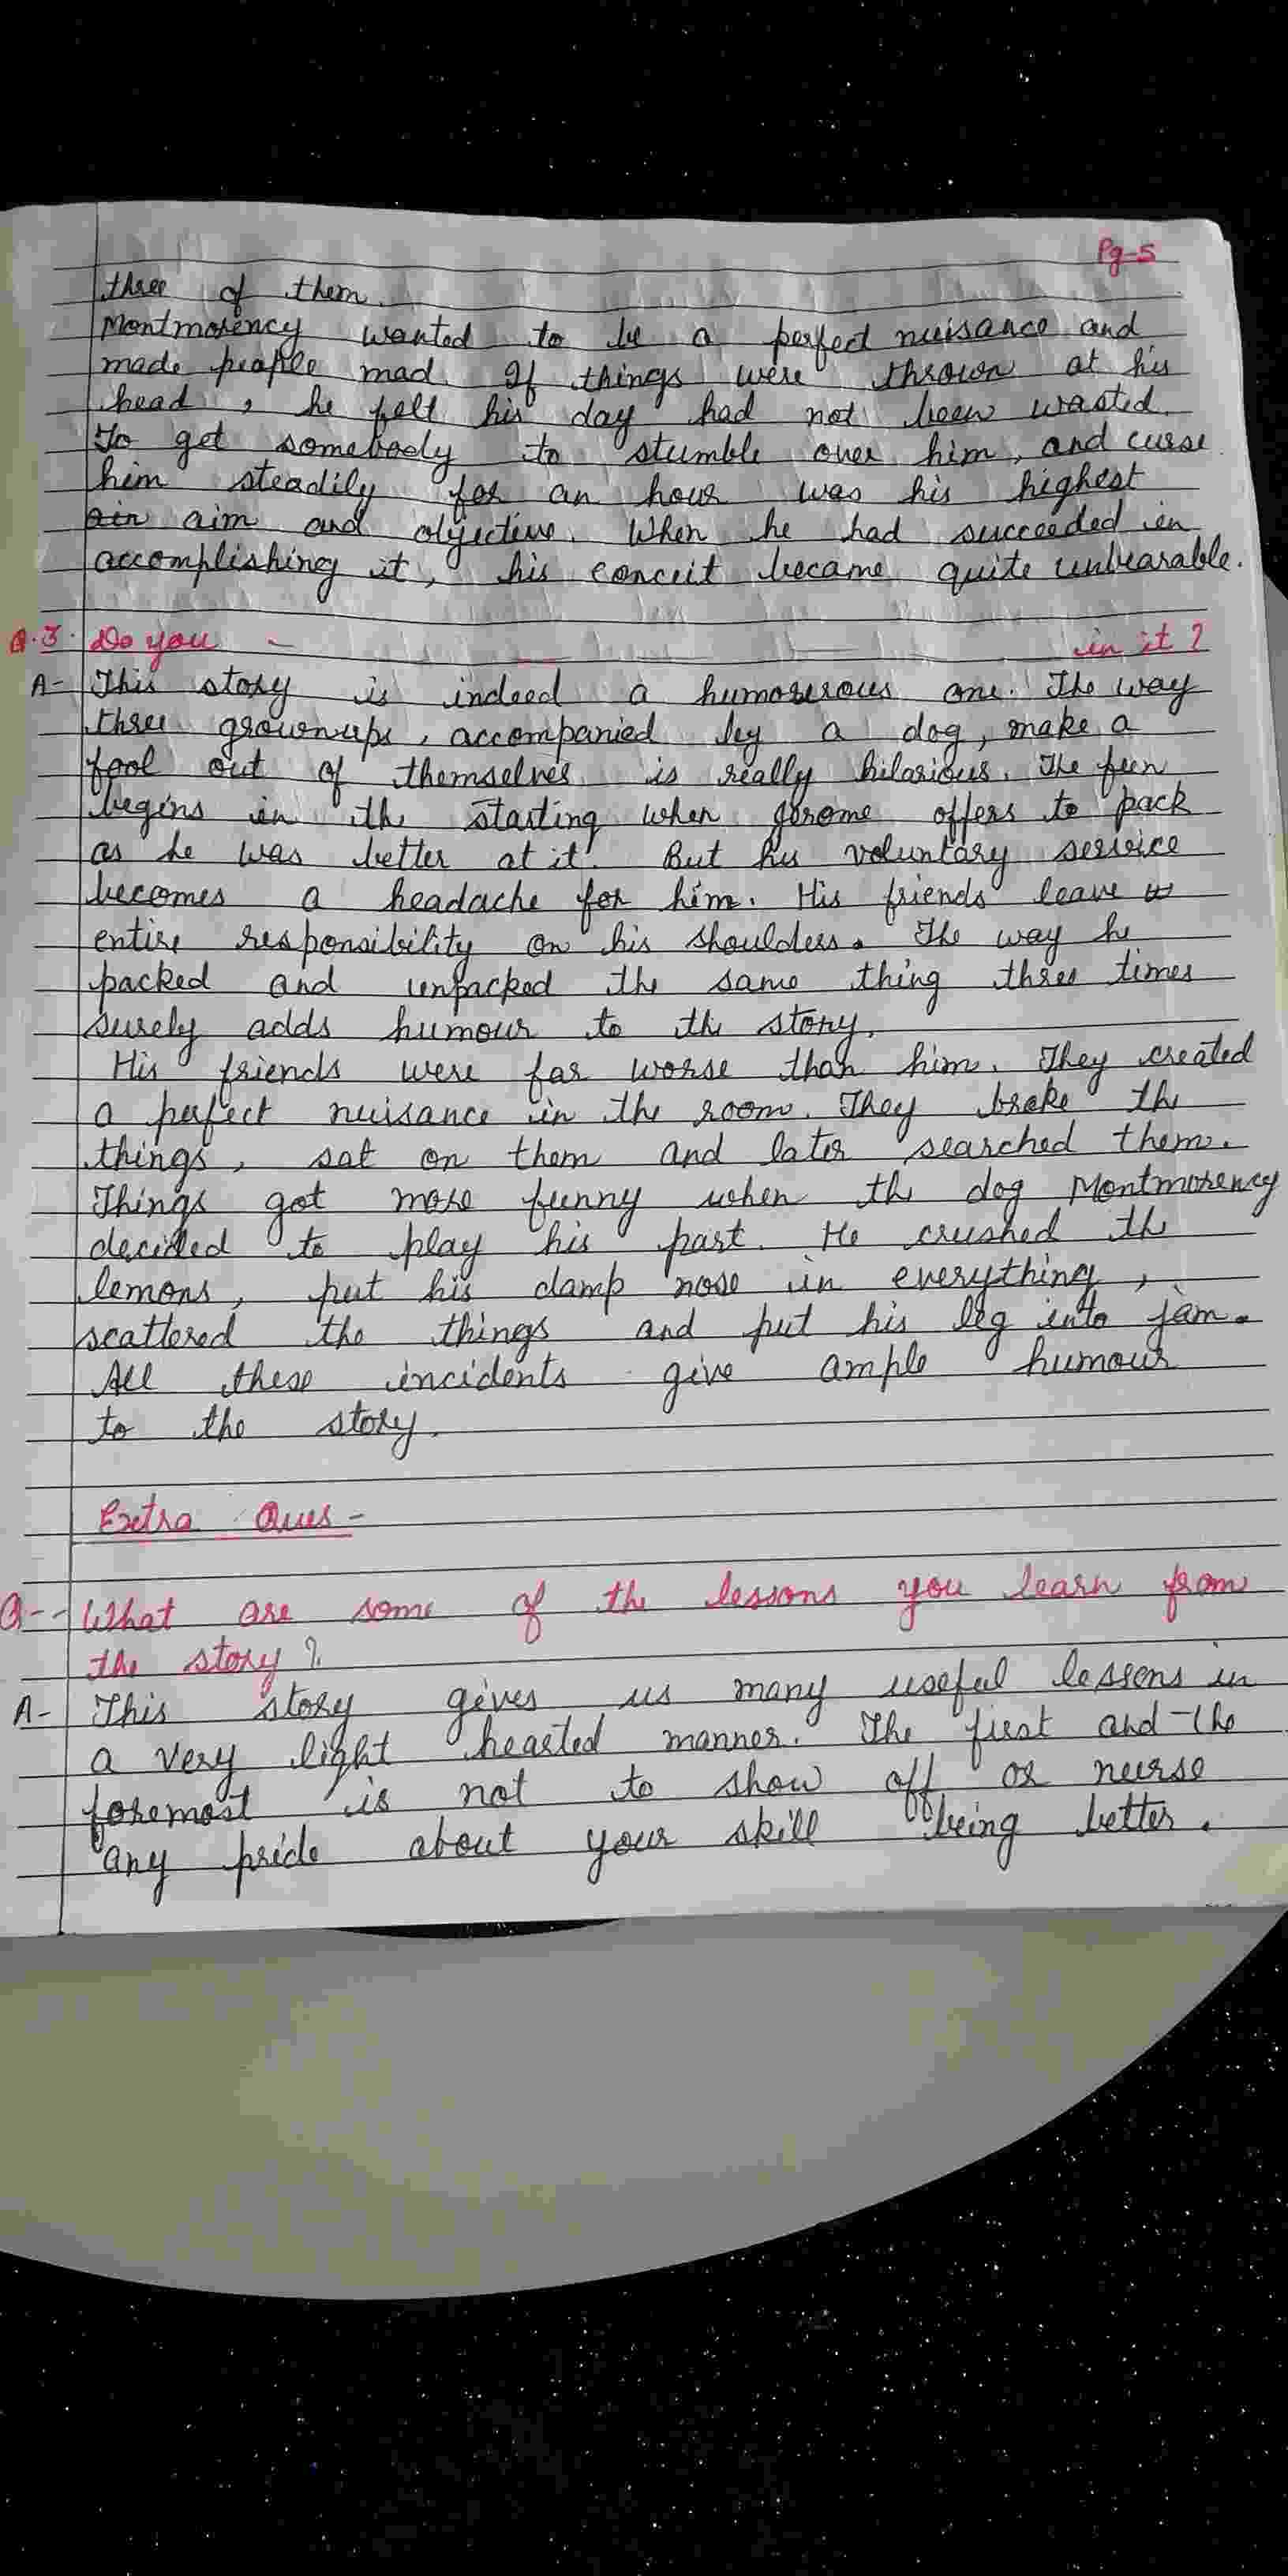 Pg-5
three of them.
Montmorency wanted to be a perfect nuisance and
made people mad. If things were thrown at his
head, he felt his day had not been wasted.
To get somebody to stumble over him, and curse
him steadily for an hour was his highest
aim and objective. When he had succeeded in
accomplishing it, his conceit became quite unbearable.
Q.3. Do you - in it?
A- This story is indeed a humorerous one. The way
three grownups, accompanied by a dog, make a
fool out of themselves is really hilarious. The fun
begins in the starting when Jerome offers to pack
as he was better at it! But his voluntary service
becomes a headache for him. His friends leave
entire responsibility on his shoulders. The way he
packed and unpacked the same thing three times
surely adds humour to the story.
His friends were far worse than him. They created
a perfect nuisance in the room. They broke the
things, sat on them and later searched them.
Things got more funny when the dog Montmorency
decided to play his part. He crushed the
lemons, put his damp nose in everything,
scattered the things and put his leg into jam.
All these incidents give ample humour
to the story.
Extra Ques-
Q-- What are some of the lessons you learn from
the story?
A- This story gives us many useful lessons in
a very light hearted manner. The first and the
foremost is not to show off or nurse
any pride about your skill being better.